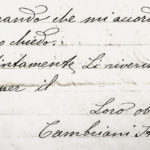 rando che mi accord
o chiedo.
intamente Li riveris
per il
Loro ob
Cambiani